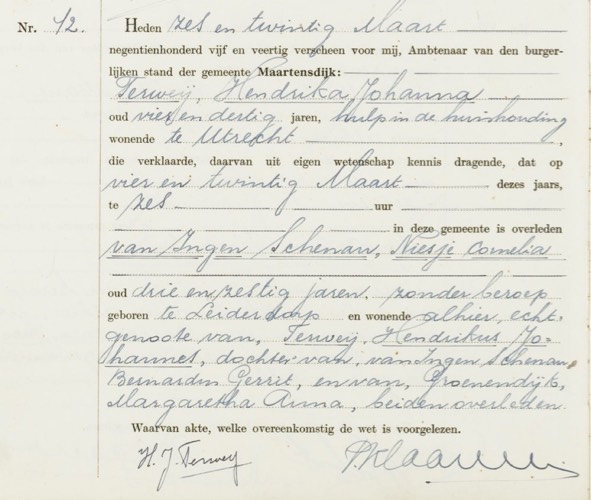 Nr. 42. Heden zes en twintig Maart
negentienhonderd vijf en veertig verscheen voor mij, Ambtenaar van den burger-
lijken stand der gemeente Maartensdijk:
Terweij, Hendrika Johanna
oud vier en dertig jaren, hulp in de huishouding
wonende te Utrecht,
die verklaarde, daarvan uit eigen wetenschap kennis dragende, dat op
vier en twintig Maart dezes jaars,
te zes uur
in deze gemeente is overleden
van Ingen Schenau, Niesje Cornelia
oud drie en zestig jaren, zonder beroep
geboren te Leiderdorp en wonende alhier, echt-
genoote van, Terweij, Hendrikus Jo-
hannes, dochter van, van Ingen Schenau,
Bernardus Gerrit, en van, Groenendijk,
Margaretha Anna, beiden overleden.
Waarvan akte, welke overeenkomstig de wet is voorgelezen.
H. J. Terweij